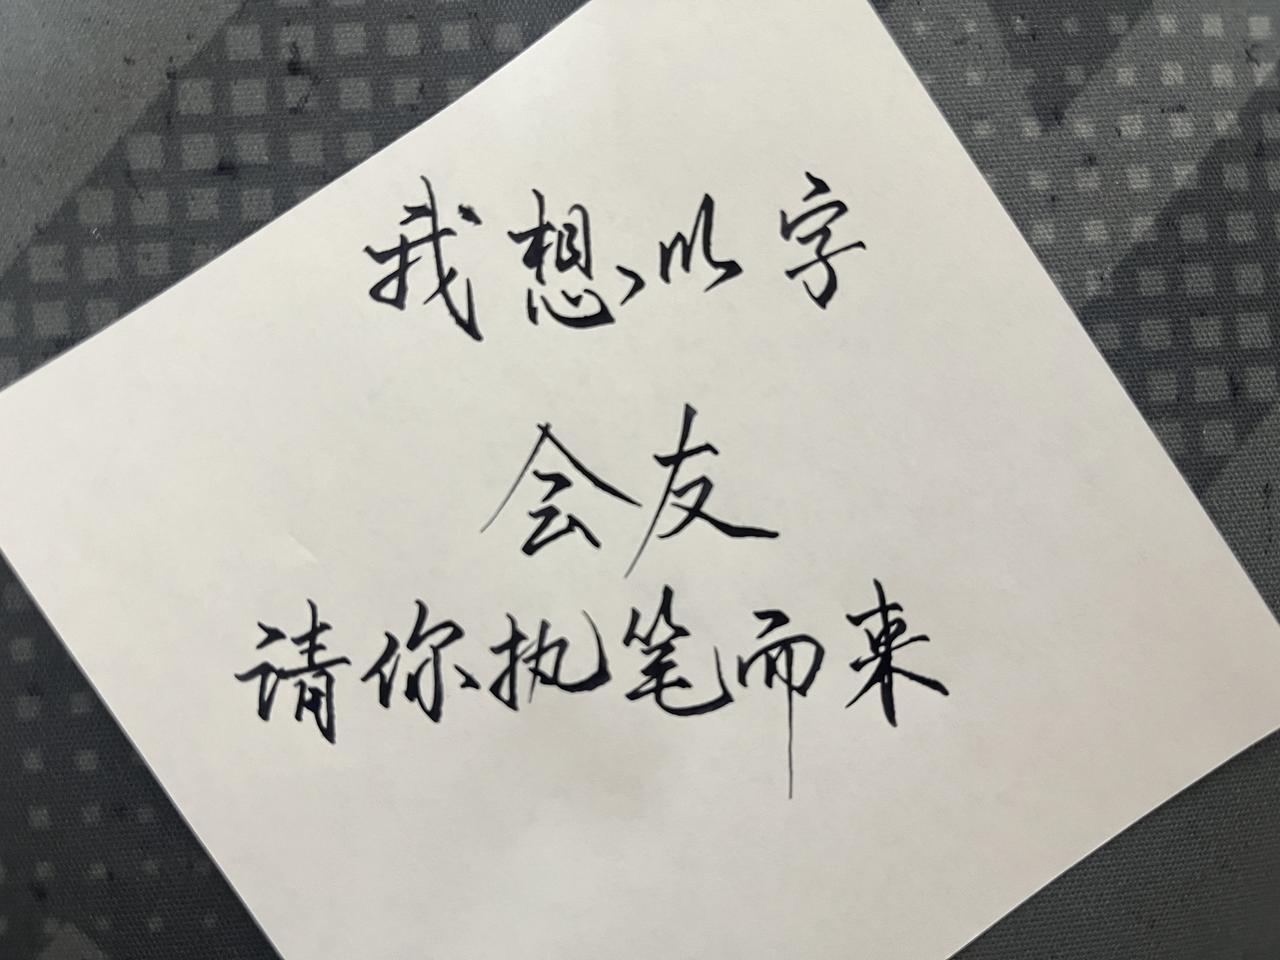 我想以字
会友
请你执笔而来